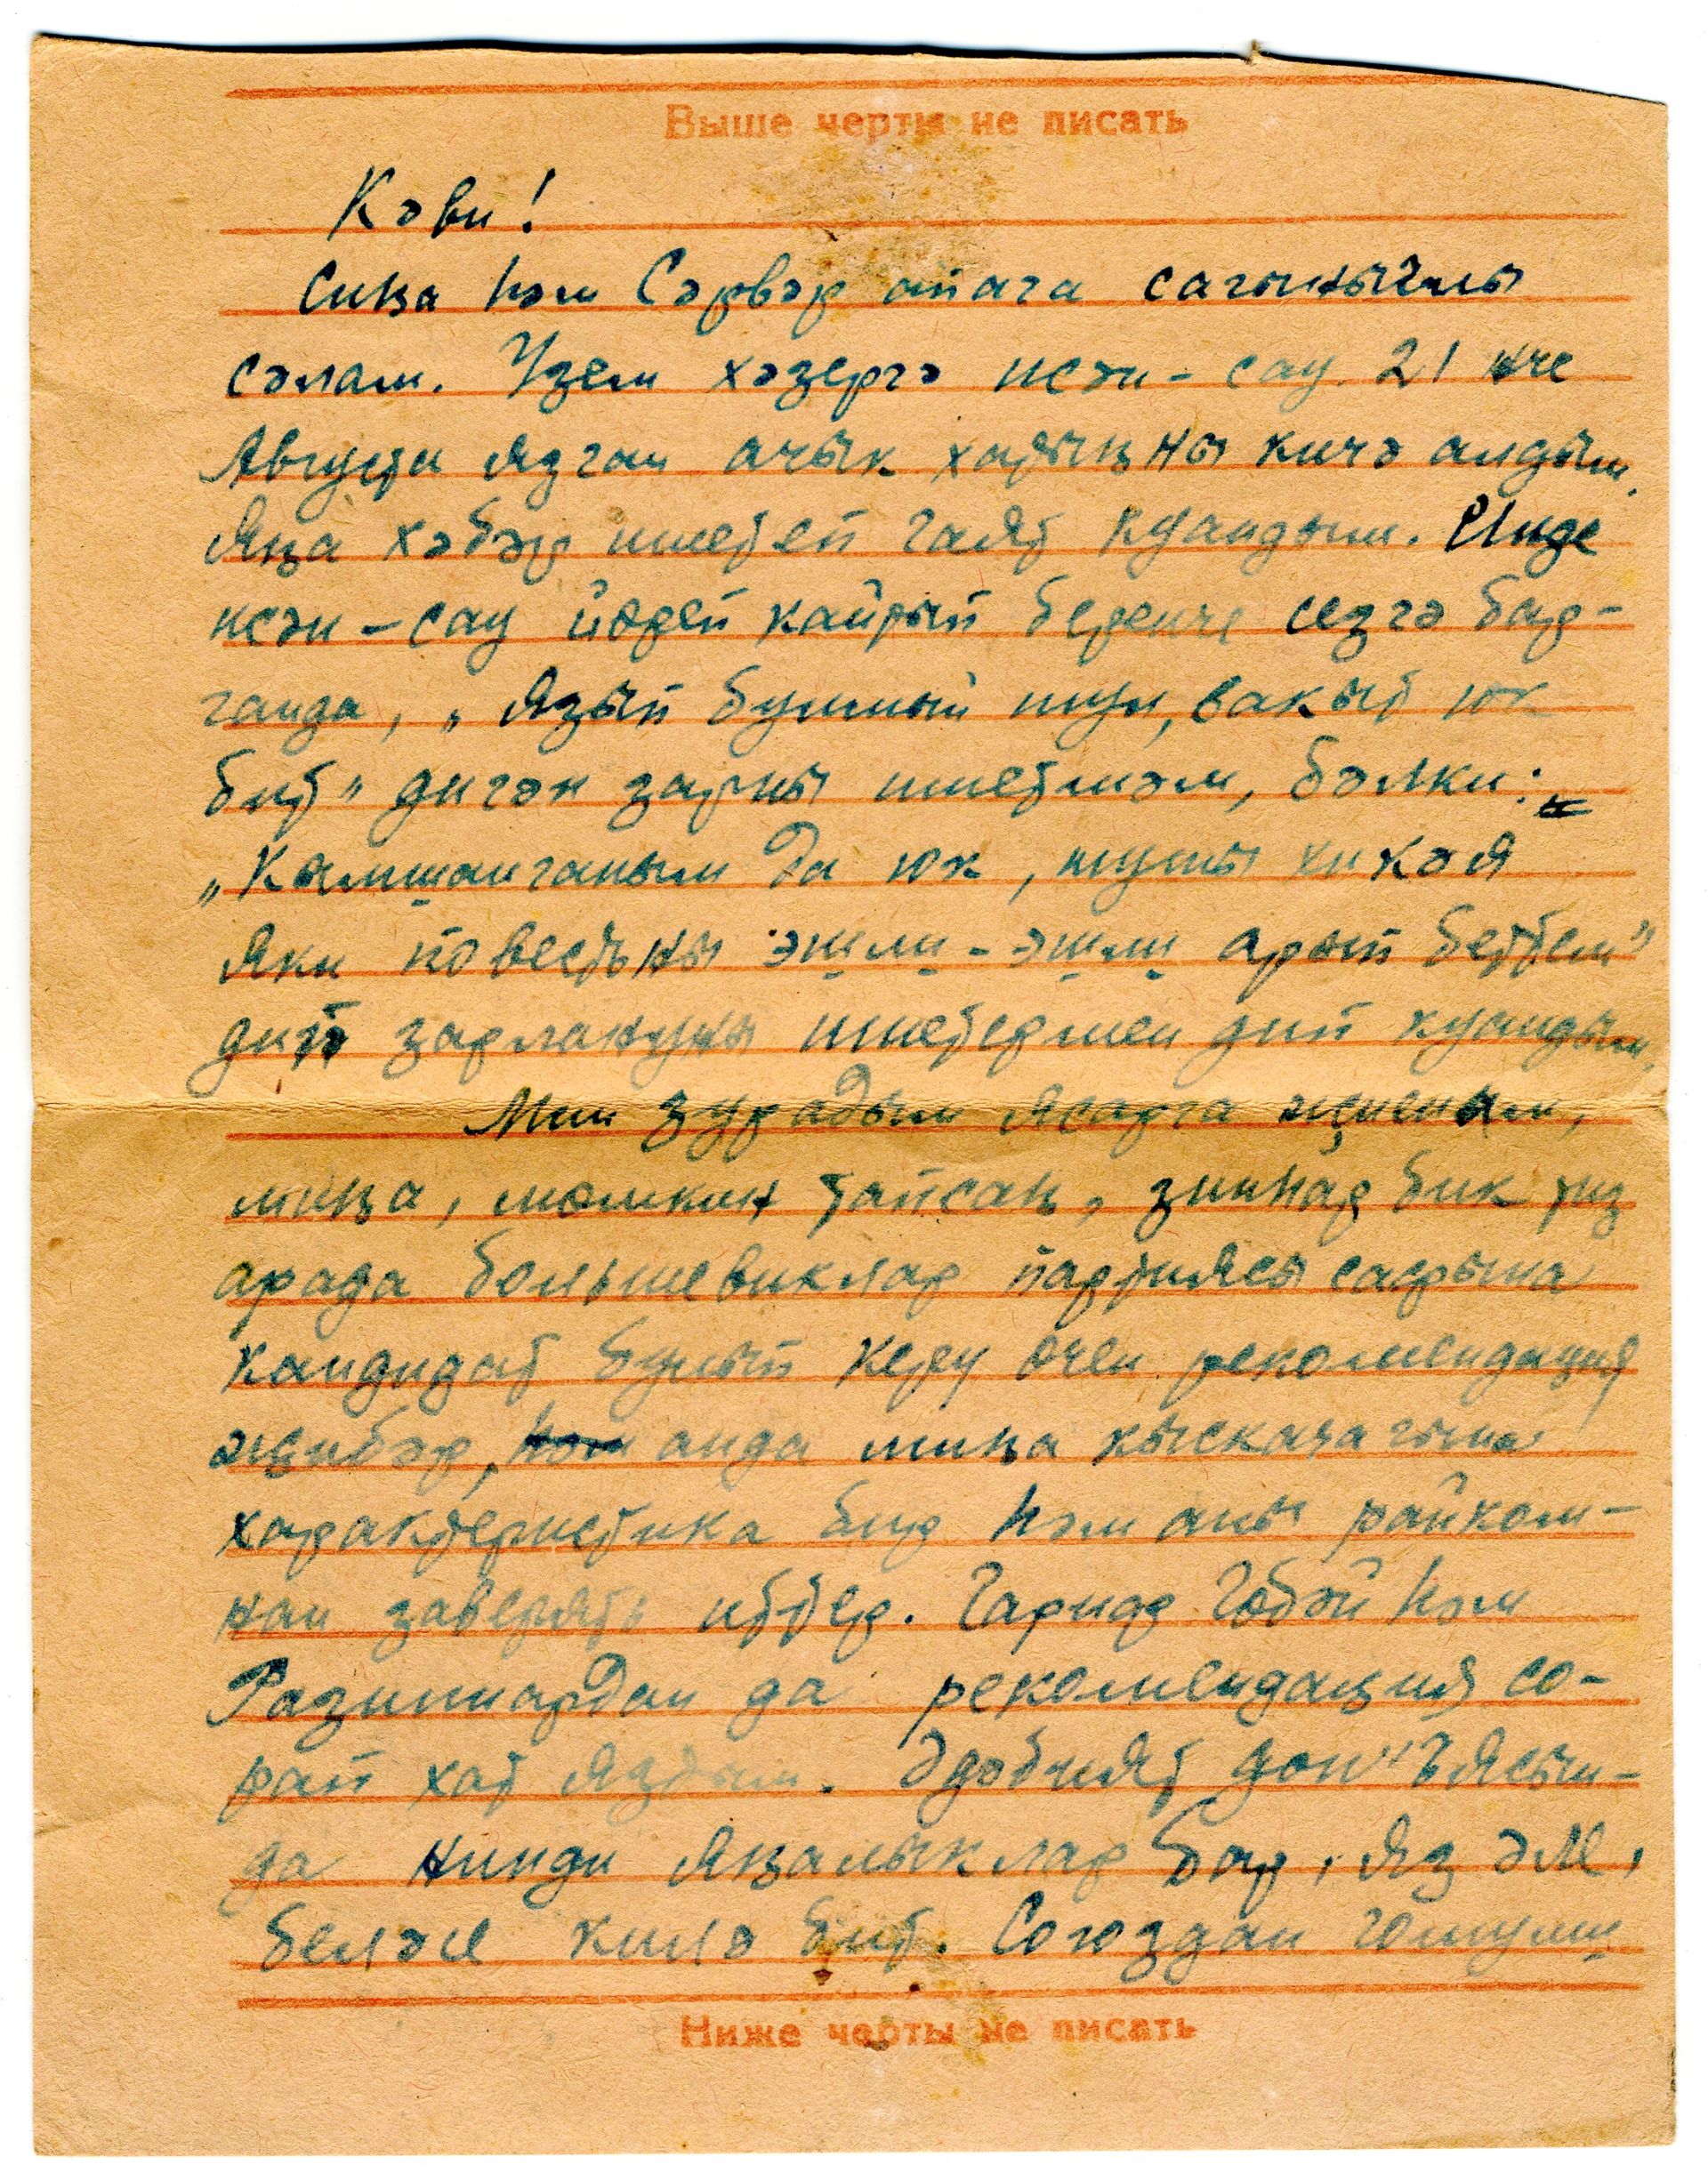 Выше черты не писать
Кәви!
Сиңа һәм Сәрвәр апага сагынычлы
сәлам. Үзем хәзергә исән-сау. 21 нче
Августа язган ачык хатыңны кичә алдым.
Яңа хәбәр ишетеп гаят куандым. Инде
исән-сау йөреп кайтып беренче сезгә бар-
ганда, „язып булмый шул, вакыт юк
бит" дигән зарны ишетмәм, бәлки:
„Кымшанганым да юк, шушы хикәя
яки повестьны эшли-эшли арып беттем"
дип зарлануны ишетермен дип куандым.
Мин зур адым ясарга җыенам,
миңа, мөмкин тапсаң, зинһар бик тиз
арада большевиклар партиясы сафына
кандидат булып керү өчен рекомендация
җибәр, анда миңа кыскача гына
характеристика бир һәм аны райком-
нан заверять иттер. Гариф Гобәй һәм
Разиннардан да рекомендация со-
рап хат яздым. Әдәбият дөнъясын-
да нинди яңалыклар бар, яз әле,
беләсе килә бит. Союздан гомуми
Ниже черты не писать